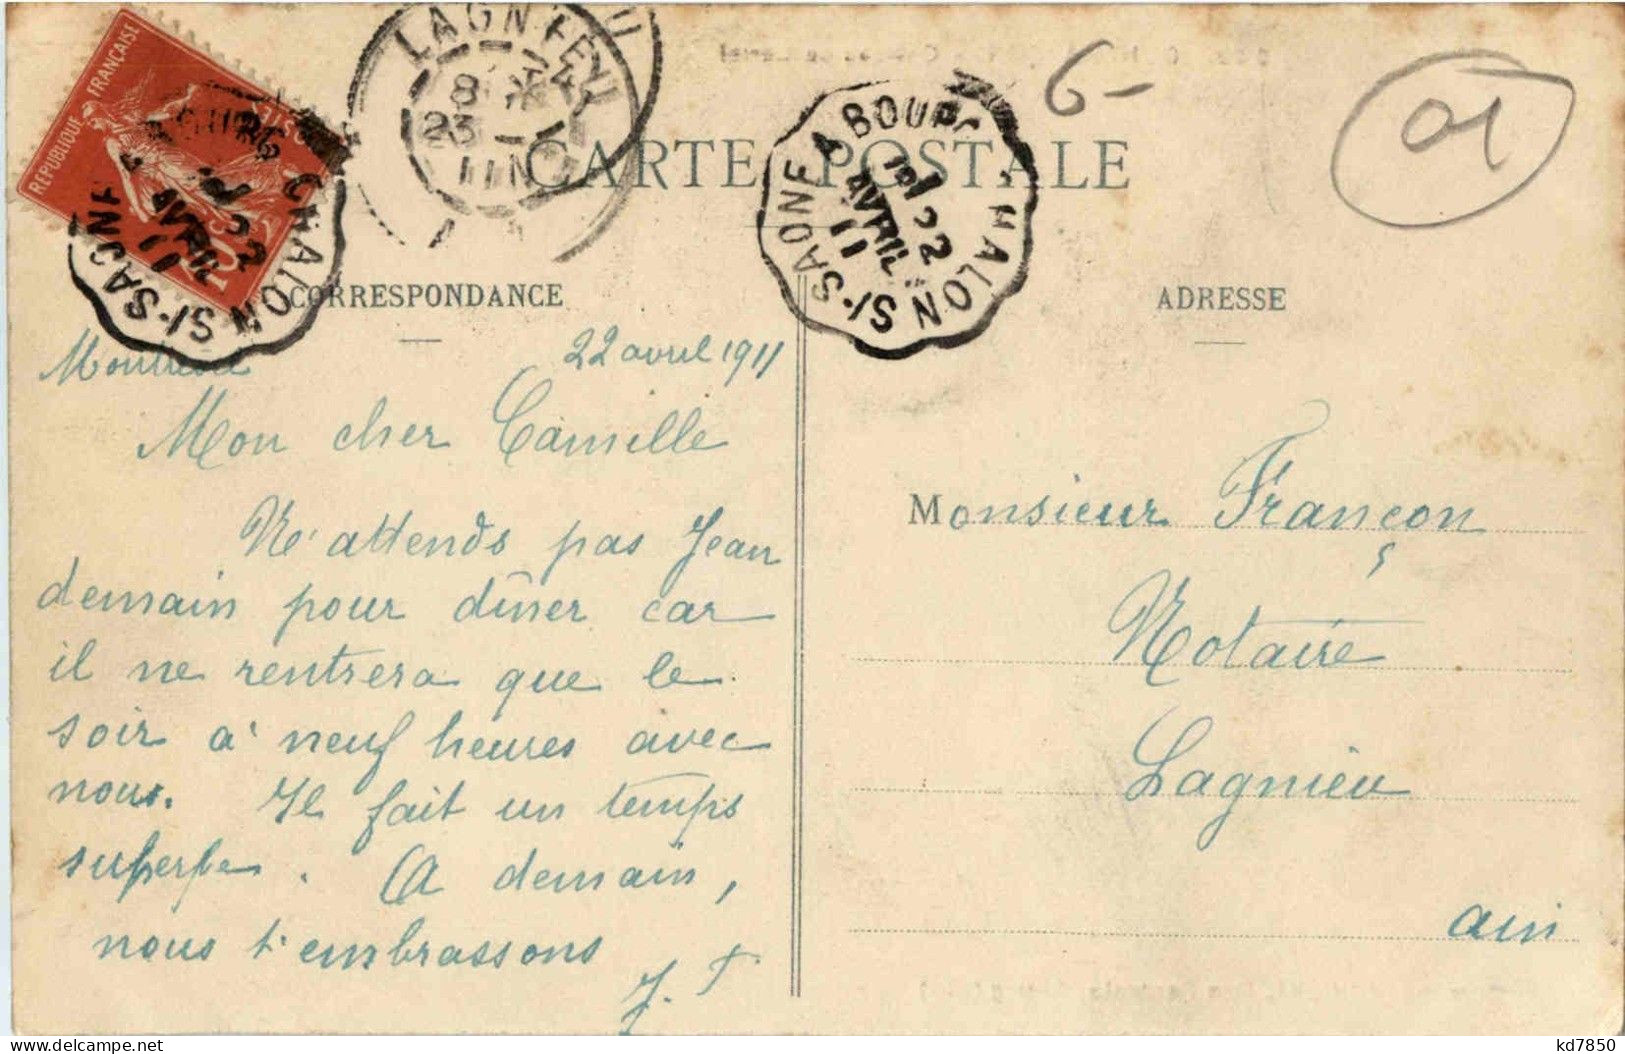 REPUBLIQUE FRANÇAISE
CHALON S/-SAONE
22
AVRIL
11
LAGNIEU
8
23
11
6-
01
CARTE POSTALE
CHALON S/-SAONE A BOURG
1
22
AVRIL
11
CORRESPONDANCE
ADRESSE
22 avril 1911
Mon cher Camille
N'attends pas Jean
demain pour dîner car
il ne rentrera que le
soir à neuf heures avec
nous. Il fait un temps
superbe. A demain,
nous t'embrassons
J. F.
Monsieur Françon
Notaire
Lagnieu
ain
kd7850